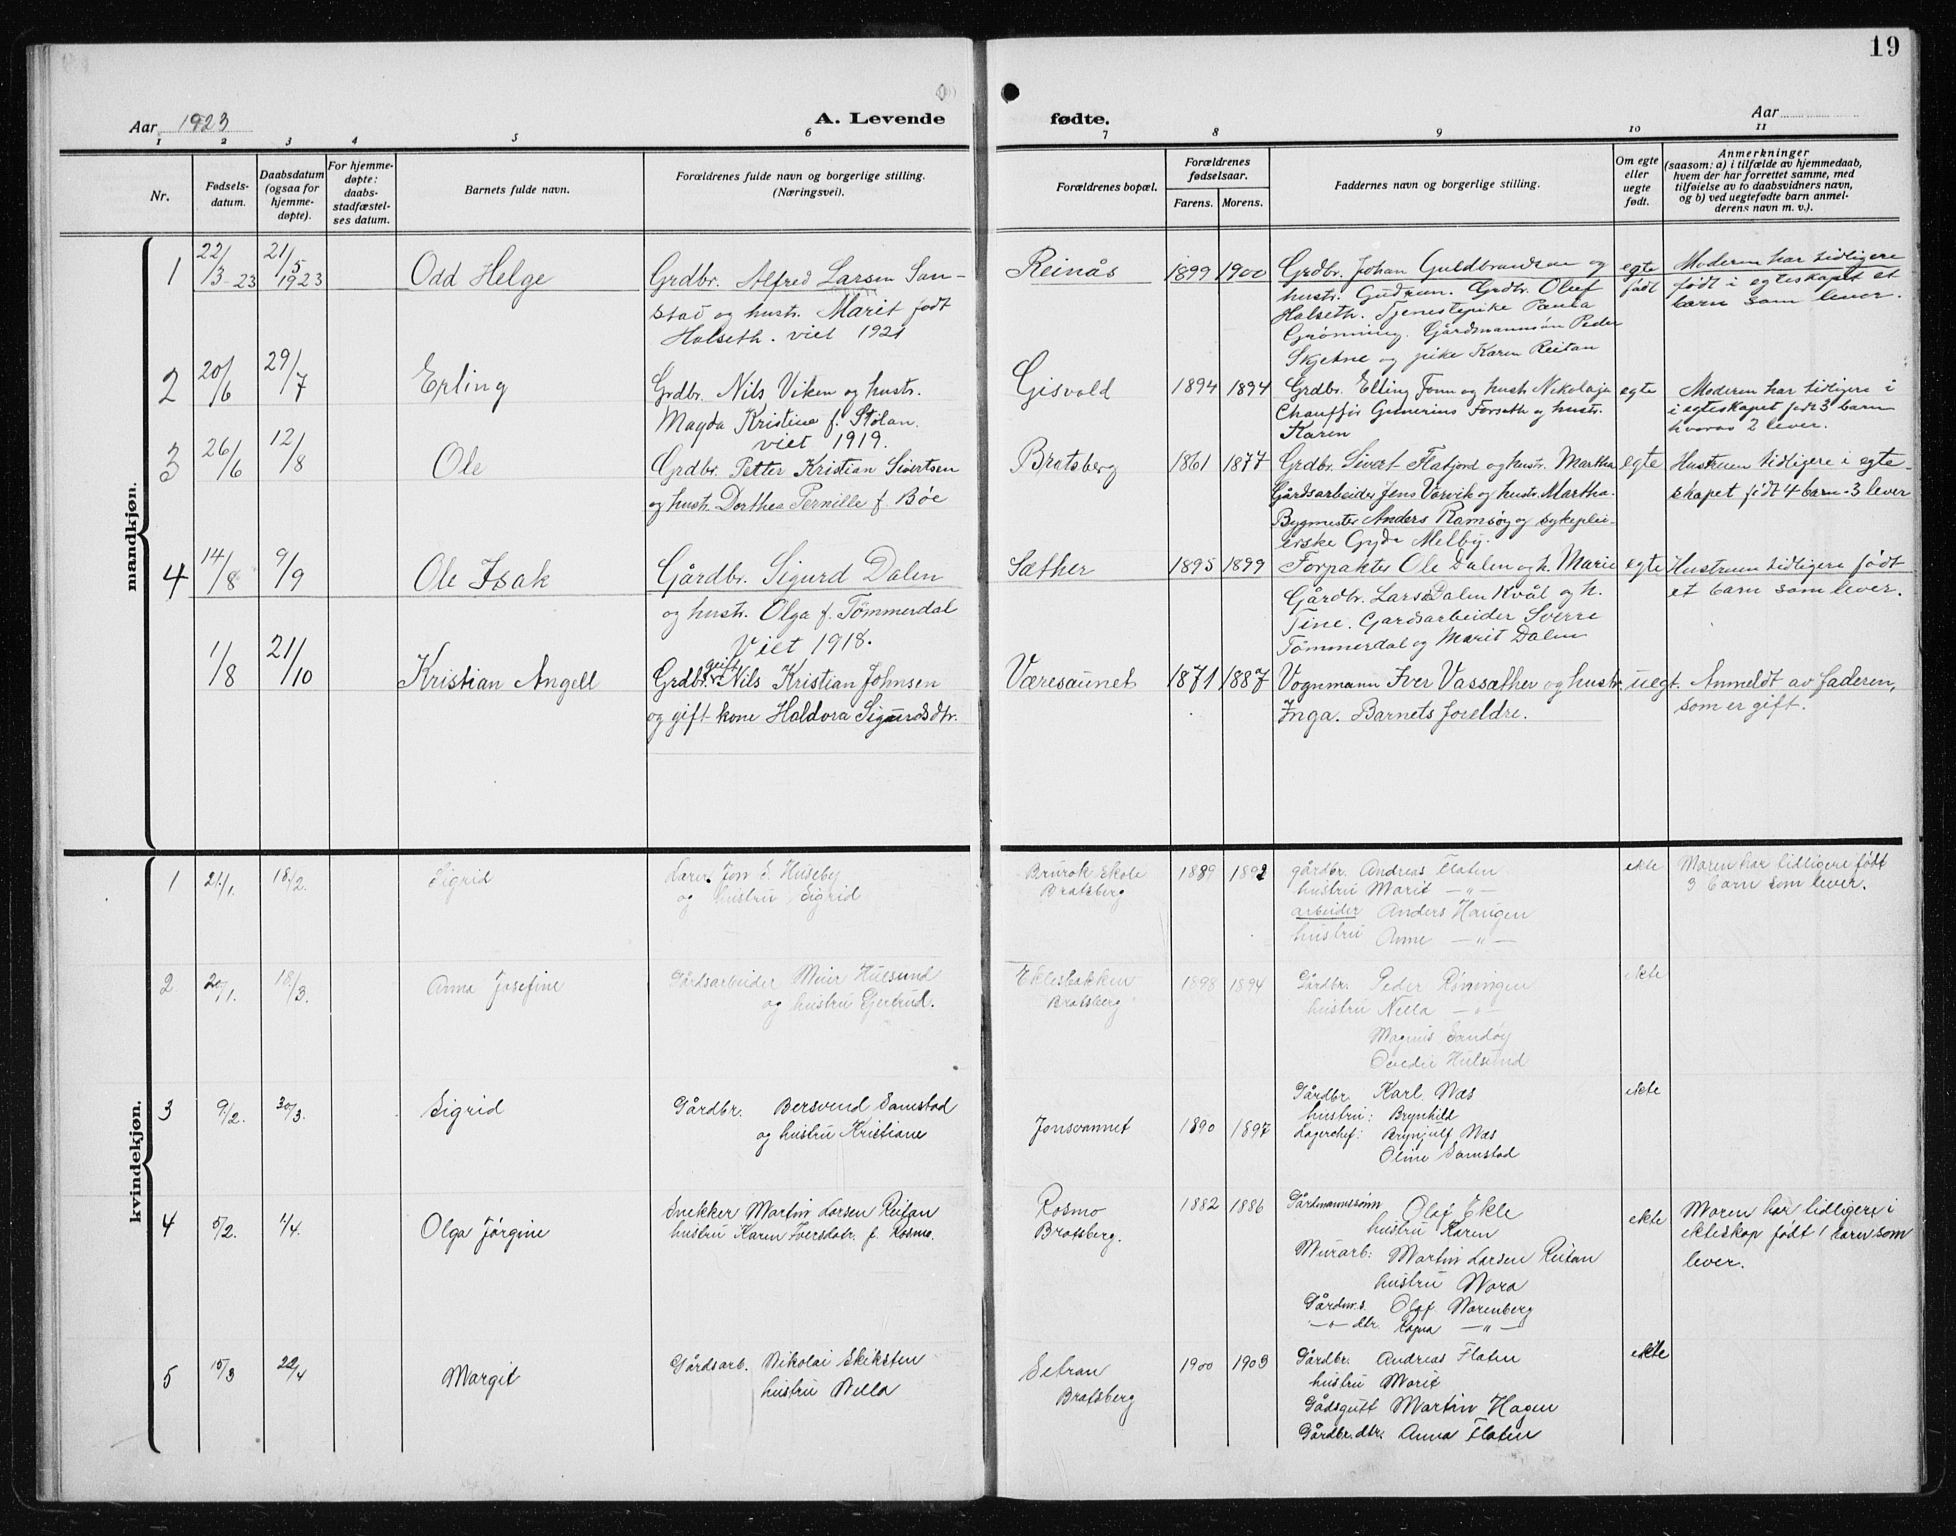 19
Aar 1923
A. Levende
fødte.
Aar
1 2 3 4 5 6 7 8 9 10 11
Nr.
Fødsels-
datum.
Daabsdatum
(ogsaa for
hjemme-
døpte).
For hjemme-
døpte:
daabs-
stadfæstel-
ses datum.
Barnets fulde navn.
Forældrenes fulde navn og borgerlige stilling.
(Næringsvei).
Forældrenes bopæl.
Forældrenes
fødselsaar.
Farens. Morens.
Faddernes navn og borgerlige stilling.
Om egte
eller
uegte
født.
Anmerkninger
(saasom: a) i tilfælde av hjemmedaab,
hvem der har forrettet samme, med
tilføielse av to daabsvidners navn,
og b) ved uegtefødte barn anmel-
derens navn m. v.).
mandkjøn.
1
22/3-23
21/5 1923
Odd Helge
Grdbr. Alfred Larsen San-
stad og hustr. Marit født
Halseth. viet 1921
Reinås
1899 1900
Grdbr. Johan Guldbrandsen og
hustr. Gudrun. Grdbr. Oluf
Halseth. Tjenestepike Paula
Grønning. Gårdmannsøn Peder
Skjetne og pike Karen Reitan
egte
født
Moderen har tidligere
født i egteskapet et
barn som lever.
2
20/6
29/7
Erling
Grdbr. Nils Viken og hustr.
Magda Kristine f. Stølan.
viet 1919.
Gisvold
1894 1894
Grdbr. Elling Tonn og hustr. Nikolaja
Chauffør Gunerius Forseth og hustr.
Karen
egte
Moderen har tidligere i
i egteskapet født 3 barn
hvorav 2 lever.
3
26/6
12/8
Ole
Grdbr. Petter Kristian Sivertsen
og hustr. Dorthea Pernille f. Bøe
Bratsberg
1861 1877
Grdbr. Sivert Flatjord og hustr. Martha
Gårdsarbeider Jens Varvik og hustr. Martha.
Bygmester Anders Ramsøy og sykeplei-
erske Gyda Melby.
egte
Hustruen tidligere i egte-
skapet født 4 barn - 3 lever
4
14/8
9/9
Ole Isak
Gårdbr. Sigurd Dalen
og hustr. Olga f. Tømmerdal
Viet 1918.
Sæther
1895 1899
Forpakter Ole Dalen og h. Marie
Gårdbr. Lars Dalen Kvål og h.
Tine. Gårdsarbeider Sverre
Tømmerdal og Marit Dalen
egte
Hustruen tidligere født
et barn som lever.
1/8
21/10
Kristian Angell
Grdbr. gift Nils Kristian Johnsen
og gift kone Haldora Sigurdsdtr.
Væresaunet
1871 1887
Vognmann Iver Vassæther og hustr.
Inga. Barnets foreldre.
uegt.
Anmeldt av faderen,
som er gift.
kvindekjøn.
1
21/1.
18/2.
Sigrid
Lærer Jon S. Huseby
og hustru Sigrid
Brurok skole
Bratsberg
1889 1892
gårdbr. Andreas Flaten
hustru Marit — " —
arbeider Anders Haugen
hustru Anne — " —
ekte
Moren har tidligere født
3 barn som lever.
2
20/1.
18/3.
Anna Josefine
Gårdsarbeider Meier Hulsund
og hustru Gjertrud.
Eklesbakken
Bratsberg
1898 1894
Gårdbr. Peder Røningen
hustru Nella — " —
Magnus Sandøy
Hulsund
ekte
3
9/2.
30/3.
Sigrid
Gårdbr. Bersvend Samstad
og hustru Kristiane
Jonsvannet
1890 1897
Gårdbr. Karl Næs
hustru: Brynhild
Lagerchef: Brynjulf Næs
Oline Samstad
ekte
4
5/2.
1/4.
Olga Jørgine
Snekker Martin Larsen Reitan
hustru Karen Iversdatr. f. Rosmo.
Rosmo
Bratsberg.
1882 1886
Gårdmannssønn Olaf Ekle
hustru Karen
Murarb: Martin Larsen Reitan
hustru Nora
Gårdm.s. Olaf Norenberg
— " — dtr. Ragna — " —
ekte
Moren har tidligere i
ekteskap født 1 barn som
lever.
5
15/3
22/4
Margit
Gårdsarb. Nikolai Skiksten
hustru Nella
Setran
Bratsberg
1900 1903
Gårdbr. Andreas Flaten
hustru Marit
Gådsgutt Martin Hagen
Gårdbr. dtr. Anna Flaten
ekte